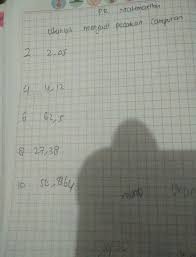 PR matematika
Ubahlah menjadi pecahan campuran
2 2,05
4 4,12
6 62,5
8 27,38
10 56,8864